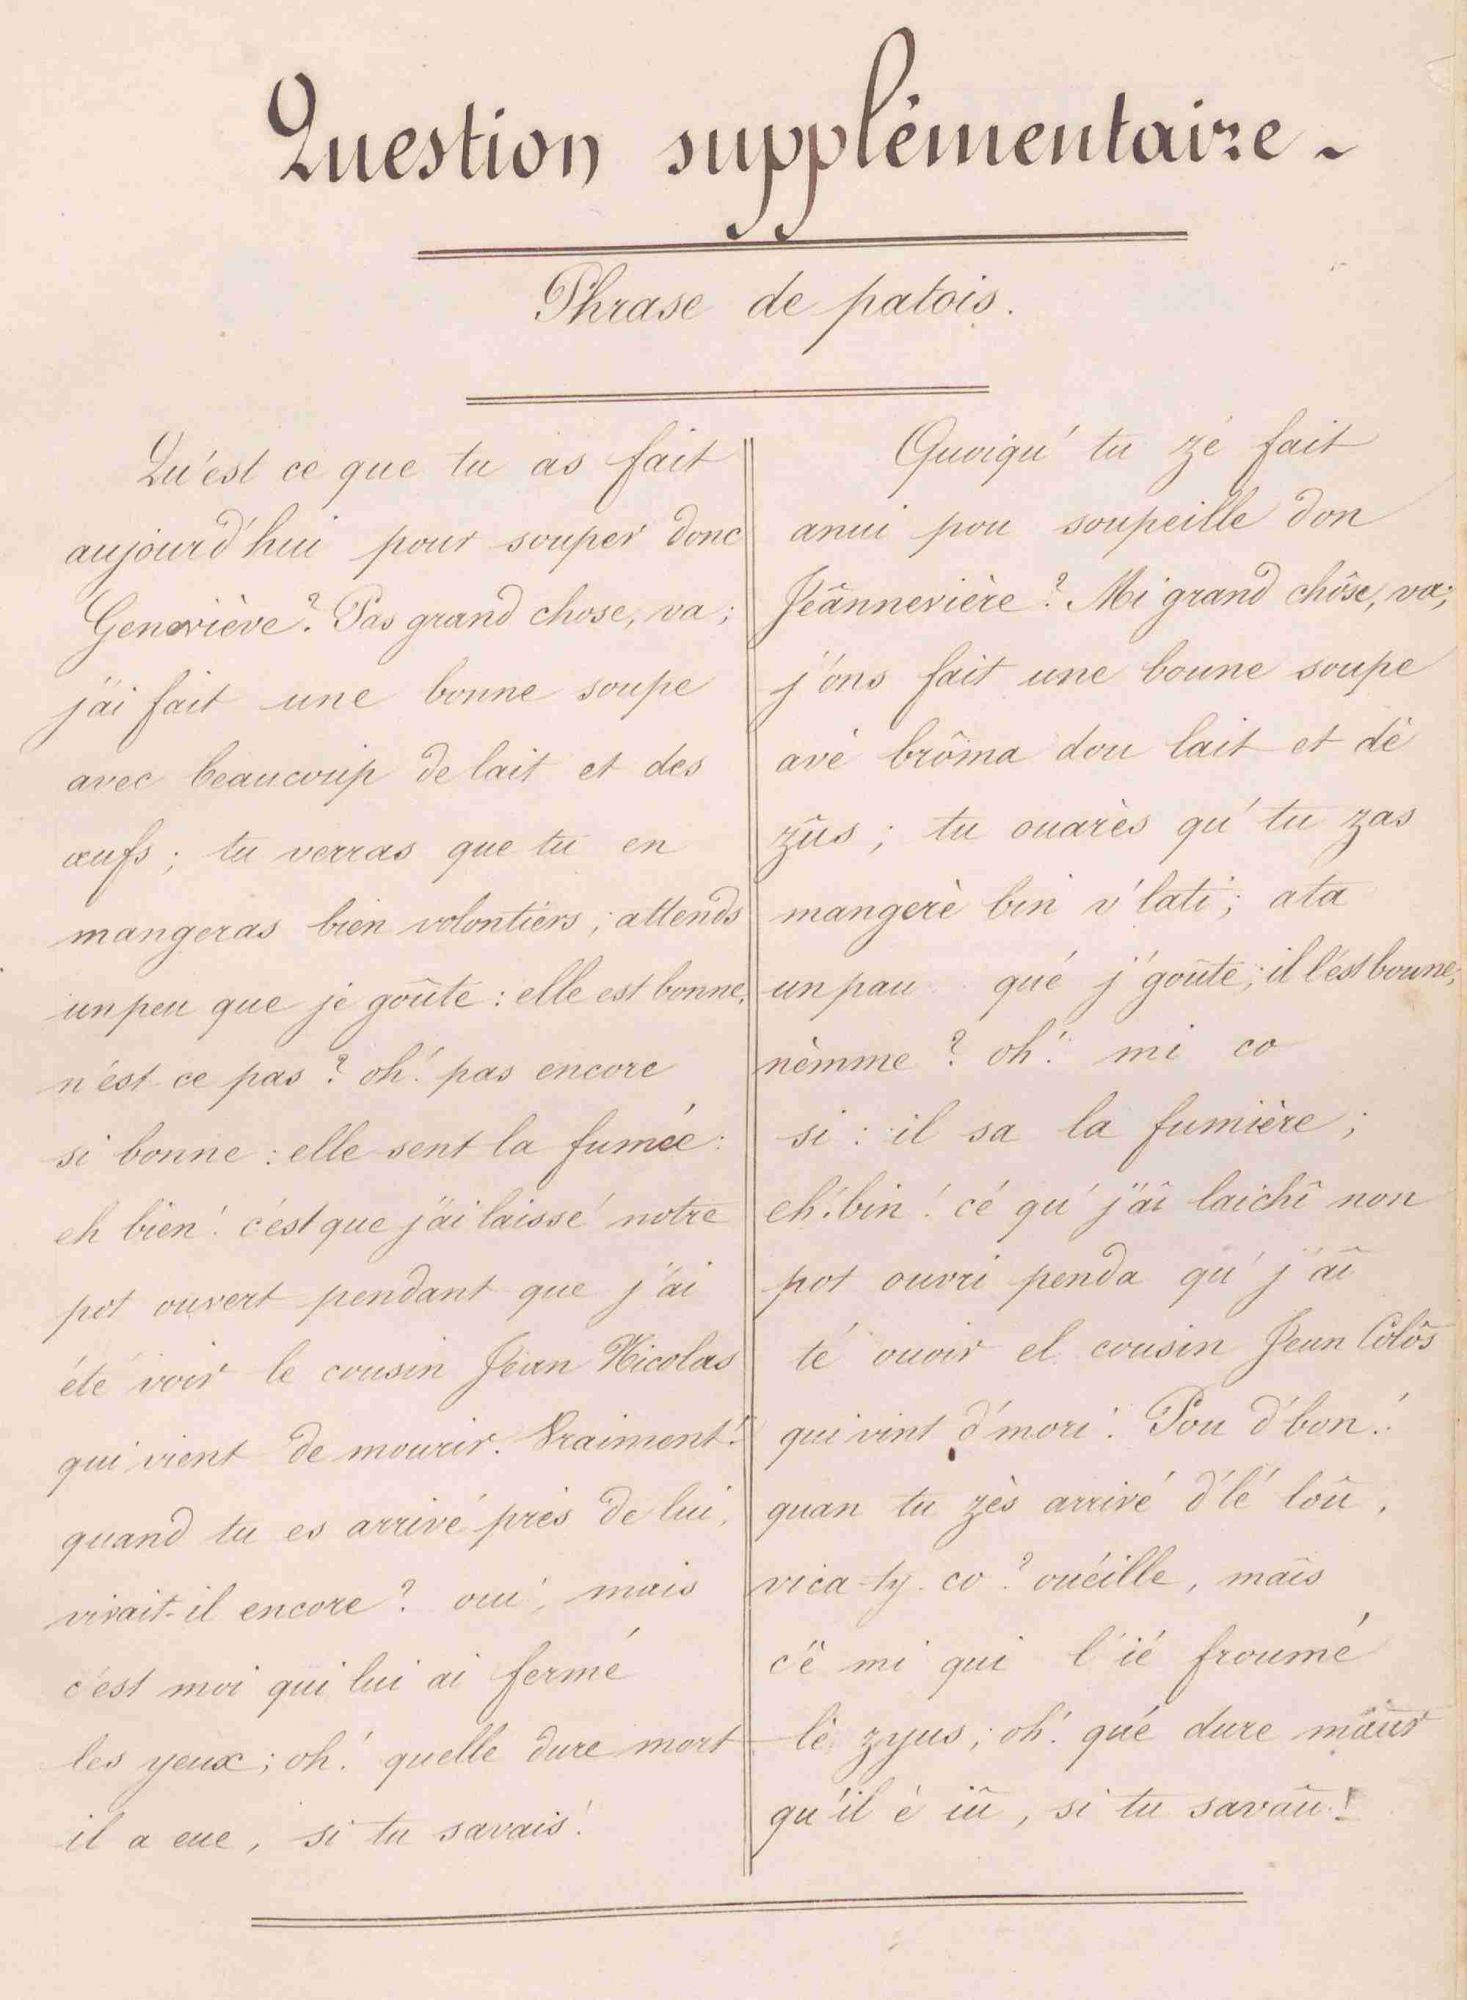 Question supplémentaire.
Phrase de patois.
Qu'est ce que tu as fait
aujourd'hui pour souper donc
Geneviève? Pas grand chose, va;
j'ai fait une bonne soupe
avec beaucoup de lait et des
œufs; tu verras que tu en
mangeras bien volontiers; attends
un peu que je goûte: elle est bonne,
n'est-ce pas? oh! pas encore
si bonne: elle sent la fumée:
eh bien! c'est que j'ai laissé notre
pot ouvert pendant que j'ai
été voir le cousin Jean Nicolas
qui vient de mourir. Vraiment!
quand tu es arrivé près de lui,
vivait-il encore? oui, mais
c'est moi qui lui ai fermé
les yeux; oh! quelle dure mort
il a eue, si tu savais!
Quoiqu' tu zé fait
anui pou soupeille don
Jeânnevière? Mi grand chôse, va;
j'ons fait une boune soupe
avè brôma dou lait et dè
zûs; tu ouarès qu' tu zas
mangerè bin v'lati; ata
un pau qué j' goûte; il l'est boune,
nèmme? oh! mi co
si: il sa la fumière;
eh! bin! cé qu' j'aî laichî non
pot ouvri penda qu' j'aî
té ouoir el cousin Jean Colôs
qui vint d'mori! Pou d'bon!
quan tu zès arrivé d'lé loû,
vica-ty-co? ouéille, maîs
c'ê mi qui l'ié froumé
lè zyus; oh! qué dure maûr
qu'il é iû, si tu savaû!